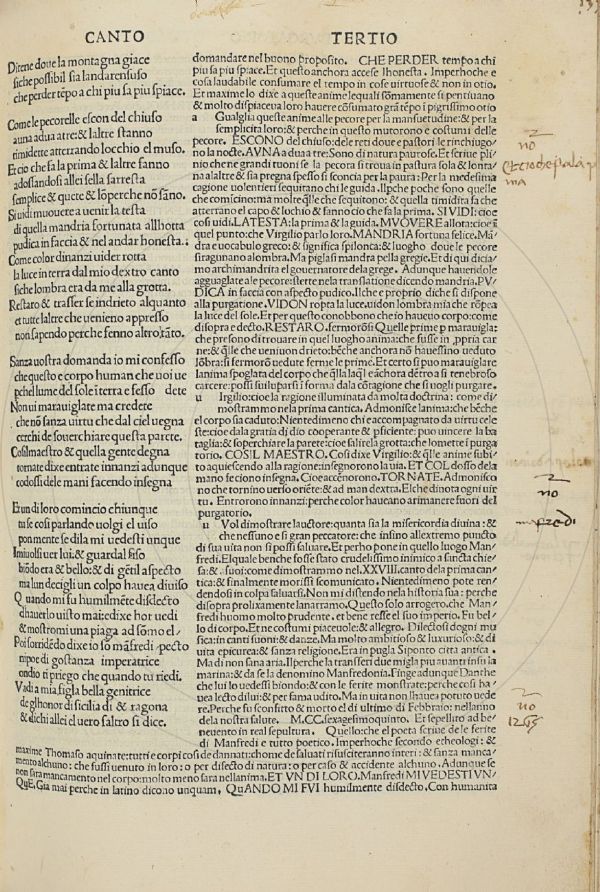 CANTO
TERTIO
Ditene doue la montagna giace
siche possibil sia landarensuso
che perder tẽpo a chi piu sa piu spiace.
Come le pecorelle escon del chiuso
auna adua atre: & laltre stanno
timidette atterrando locchio el muso.
Et cio che fa la prima & laltre fanno
adossandosi allei sella sarresta
semplice & quete & lõperche nõ sãno.
Si uidi muouere a uenir la testa
di quella mandria fortunata allhotta
pudica in faccia & nel andar honesta.
Come color dinanzi uider rotta
la luce in terra dal mio dextro canto
siche lombra era da me alla grotta.
Restaro & trasser se indrieto alquanto
et tutte laltre che uenieno appresso
non sapendo perche fenno altro tãto.
Sanza uostra domanda io mi confesso
che questo e corpo human che uoi ue
pchel lume del sole ĩ terra e fesso dete
Non ui marauigliate ma credete
che nõ sanza uirtu che dal ciel uegna
cerchi de souerchiare questa parete.
Cosil maestro & quella gente degna
tornate dixe entrate innanzi adunque
codossi delle mani facendo insegna
Et un di loro comincio chiunque
tu se cosi parlando uolgi el uiso
pon mente se di la mi uedesti unque
Imi uolsi uer lui: & guardal fiso
biõdo era & bello: & di gẽtil aspecto
ma lun decigli un colpo hauea diuiso
Quando mi fu humilmẽte disdecto
dhauerlo uisto mai: dixe hor uedi
& mostromi una piaga ad sõmo el
Poi sorridẽdo dixe io so mãfredi pecto
nipote di gostanza imperatrice
ondio ti priego che quando tu riedi.
Vadi a mia figla bella genitrice
de glhonor di sicilia di & ragona
& dichi allei el uero saltro si dice.
domandare nel buono proposito. CHE PERDER tempo a chi
piu sa piu spiace. Et questo anchora accese lhonesta. Imperhoche e
cosa laudabile consumare el tempo in cose uirtuose & non in otio.
Et maxime lo dixe a queste anime lequali sõmamente si pentiuano
& molto dispiaceua loro hauere cõsumato grã tẽpo ĩ pigrissimo otio
a Guaglia queste anime alle pecore per la mansuetudine: & per la
semplicita loro: & perche in questo mutorono e costumi delle
pecore. ESCONO del chiuso: dele reti doue e pastori le rinchiugo/
no la nocte. AVNA a dua a tre: Sono di natura paurose. Et scriue pli/
nio che ne grandi tuoni se la pecora si troua in pastura sola & lonta/
na alaltre & sia pregna spesso si sconcia per la paura: Per la medesima
cagione uolentieri sequitano chi le guida. Ilpche poche sono quelle
che comicino: ma molte q̃lle che sequitono: & quella timidita fa che
atterrano el capo & lochio & fanno cio che fa la prima. SI VIDI: cioe
cosi uidi. LATESTA: la prima & la guida. MVOVERE allotta: cioe ĩ
quel punto: che Virgilio parlo loro. MANDRIA fortuna felice. Mã
dra e uocabulo greco: & significa spilonca: & luogho doue le pecore
siragunano alombra. Ma piglasi mandra pella gregie. Et di qui dicia/
mo archimandrita el gouernatore dela grege. Adunque hauendole
agguaglate ale pecore: stette nela translatione dicendo mandria. PV/
DICA in faccia con aspecto pudico. Ilche e proprio di che si dispone
alla purgatione. VIDON ropta la luce. uidon lombra mia che rõpea
la luce del sole. Et per questo conobbono che io haueuo corpo: come
disopra e decto. RESTARO. fermorõsi Quelle prime p marauigla:
che presono di trouare in quel luogho anima: che fusse in ,ppria car
ne: & q̃lle che uenion drieto: bẽche anchora nõ hauessino ueduto
lõbra: si fermorõ uedute ferme le prime. Et certo si puo marauiglare
lanima spoglata del corpo che q̃lla laq̃l e achora dẽtro a si tenebroso
carcere: possi suiluparsi ĩ forma dala cõtagione che si uogli purgare.
u Irgilio: cioe la ragione illuminata da molta doctrina: come di
mostrammo nela prima cantica. Admonisce lanima: che bẽche
el corpo sia caduto: Nientedimeno chi e accompagnato da uirtu cele
ste: cioe dala gratia di dio cooperante & pficiente: puo uincere la ba
taglia: & soperchiare la parete: cioe salire la grotta: che lo mette ĩ purga
torio. COSIL MAESTRO. Cosi dixe Virgilio: & q̃lle anime subi/
to aquiescendo alla ragione: insegnorono la uia. ET COL dosso dela
mano feciono insegna. Cioe accẽnorono. TORNATE. Admonisco
no che tornino uerso oriẽte: & ad man dextra. Elche dinota ogni uir
tu. Entrorono innanzi: perche color haueano arimanere fuori del
purgatorio.
u Vol dimostrare lauctore: quanta sia la misericordia diuina: &
che nessuno e si gran peccatore: che insino allextremo puncto
di sua uita non si possi saluare. Et perho pone in quello luogo Man/
fredi. Elquale benche fosse stato crudelissimo inimico a sancta chie/
sa: & a suoi: come dimostrammo nel .XXVIII. canto dela prima can/
tica: & finalmente morissi scomunicato. Nientedimeno pote ren/
dendosi in colpa saluarsi. Non mi distendo nela historia sua: perche
disopra prolixamente lanarramo. Questo solo arrogero. che Man/
fredi huomo molto prudente. et bene resse el suo imperio. Fu bel/
lo di corpo. Et ne costumi piaceuole: & allegro. Dilectossi dogni mu
sica: in canti suoni: & danze. Ma molto ambitioso & luxurioso: & di
uita epicurea: & sanza religione. Era in pugla Siponto citta antica.
Ma di non sana aria. Ilperche la transferi due migla piu auanti insu la
marina: & da se la denomino Manfredonia. Finge adunque Danthe
che lui lo uedessi biondo: & con le ferite monstrate: perche cosi ha
uea lecto di lui: & per fama udito. Ma in uita non lhaueua potuto uede
re. Perche fu sconfitto & morto el di ultimo di Febbraio: nellanno
dela nostra salute. M.CC.sexagesimoquinto. Et sepelliro ad be/
neuento in real sepultura. Quello: che el poeta scriue de le ferite
di Manfredi e tutto poetico. Imperhoche secondo etheologi: &
maxime Thomaso aquinate: tutti e corpi cosi de dannati: chome de saluati risusciteranno interi: & sanza manca/
mento alchuno: che fussi uenuto in loro: o per disecto di natura: o per caso & accidente alchuno. Adunque se
non sara mancamento nel corpo: molto meno sara nellanima. ET VN DI LORO. Manfredi MI VEDESTI VN/
QuE. Gia mai perche in latino dicono unquam. QuANDO MI FVI humilmente disdecto. Con humanita
no
no
no
1265